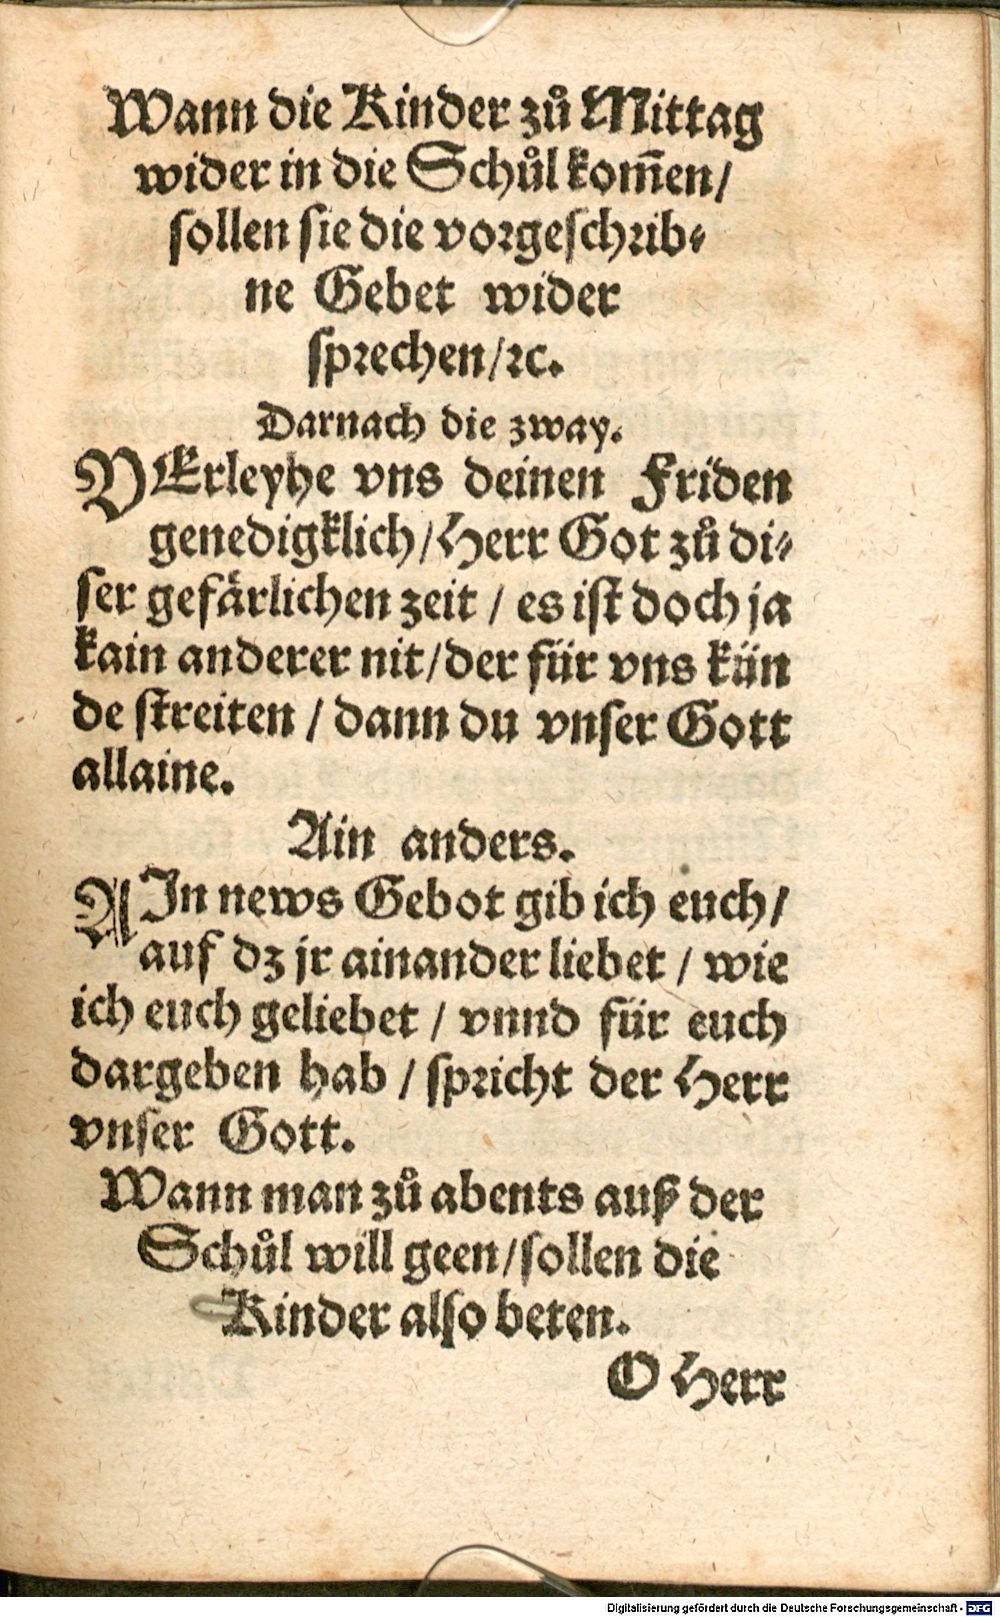 Wann die Kinder zuͦ Mittag
wider in die Schuͦl kom̃en/
sollen sie die vorgeschrib⸗
ne Gebet wider
sprechen/ꝛc.
Darnach die zway.
VErleyhe vns deinen Friden
genedigklich/Herr Got zuͦ di⸗
ser gefärlichen zeit / es ist doch ja
kain anderer nit/der für vns kün
de streiten / dann du vnser Gott
allaine.
Ain anders.
AIn news Gebot gib ich euch/
auf dz jr ainander liebet / wie
ich euch geliebet / vnnd für euch
dargeben hab / spricht der Herr
vnser Gott.
Wann man zuͦ abents auß der
Schuͦl will geen/sollen die
Kinder also beten.
O Herr
Digitalisierung gefördert durch die Deutsche Forschungsgemeinschaft - DFG